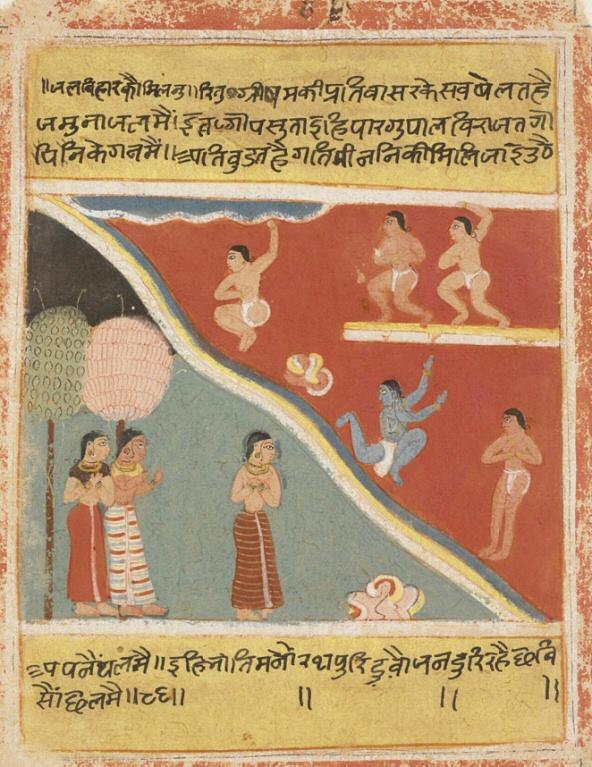 ॥जलबिहारकौमिलनु॥रितु०ग्रीषमकीप्रतिवासरकेसवषेलतहै
जमुनाजलमैं।इतगोपसुताइहिपारगुपालविराजतगो
पिनिकेगनमैं॥अतिवुडतहैगतिमीननिकीमिलिजाइउठै
अपनैंथलमै॥इहिभांतिमनोरथपुरिदुवौजनदुरिरहैछवि
सौंछिलमै॥८६॥ ॥ ॥ ॥